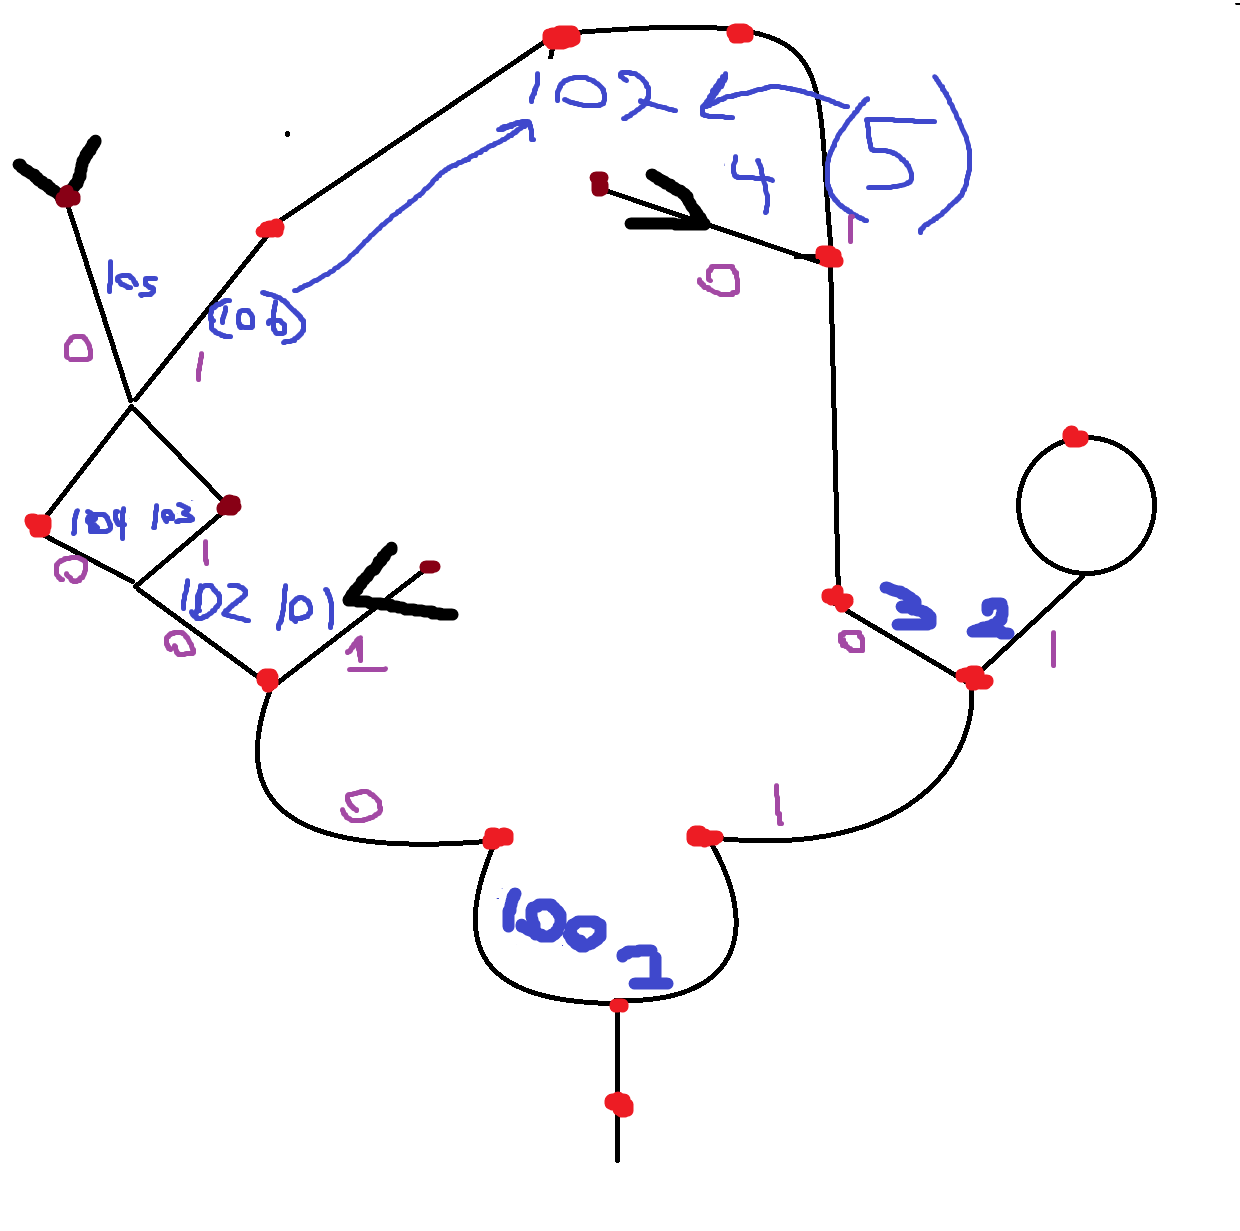 102
(5)
4
1
0
105
(106)
0
1
104 103
0
1
102 101
0
1
3 2
0
1
0
1
100
1